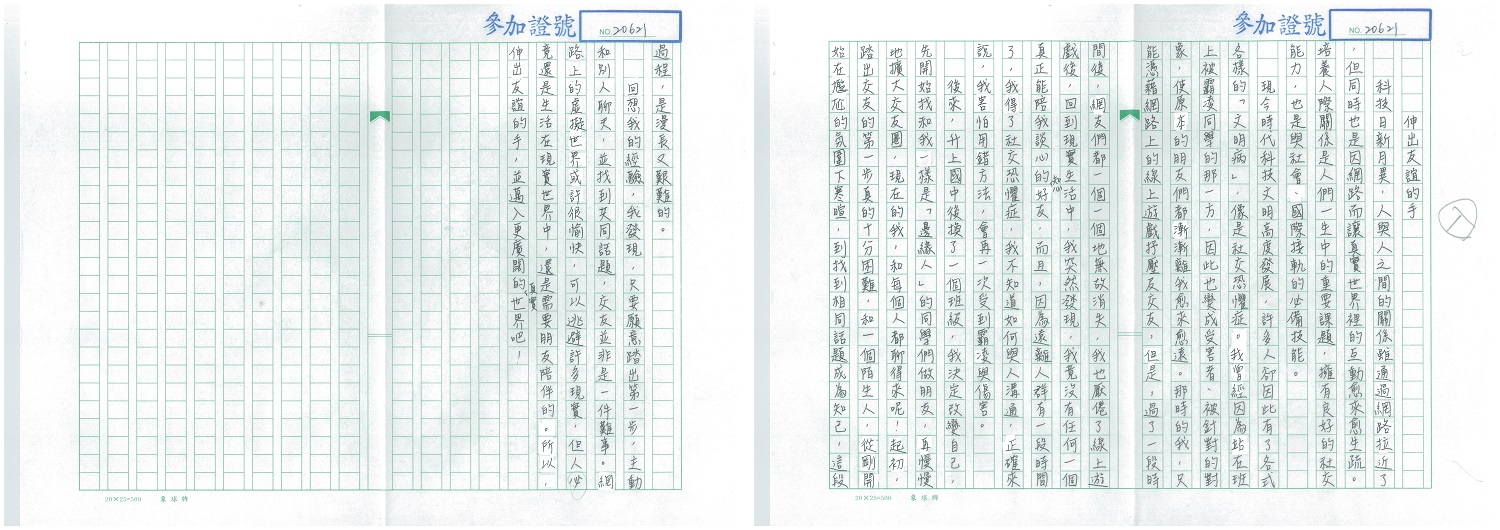 參加證號
NO. 20621
伸出友誼的手
科技日新月異、人與人之間的關係雖通過網路拉近了
，但同時也是因網路而讓真實世界裡的互動愈來愈生疏。
培養人際關係是人們一生中的重要課題，擁有良好的社交
能力，也是與社會、國際接軌的必備技能。
現今時代科技文明高度發展，許多人卻因此有了各式
各樣的「文明病」，像是社交恐懼症。我曾經因為站在班
上被霸凌同學的那一方，因此也變成受害者、被針對的對
象，使原本的朋友們都漸漸離我愈來愈遠。那時的我，只
能憑藉網路上的線上遊戲抒壓及交友，但是，過了一段時
間後，網友們都一個一個地無故消失，我也厭倦了線上遊
戲後，回到現實生活中，我突然發現，我竟沒有任何一個
真正能陪我談心的知心好友，而且，因為遠離人群有一段時間
了，我得了社交恐懼症，我不知道如何與人溝通，正確來
說，我害怕用錯方法，會再一次受到霸凌與傷害。
後來，升上國中後換了一個班級，我決定改變自己，
先開始找和我一樣是「邊緣人」的同學們做朋友，再慢慢
地擴大交友圈，現在的我，和每個人都聊得來呢！起初，
踏出交友的第一步真的十分困難，和一個陌生人，從剛開
始在尷尬的氛圍下寒暄，到找到相同話題成為知己，這段
20×25=500 象球牌
參加證號
NO. 20621
過程，是漫長又艱難的。
回想我的經驗，我發現，只要願意踏出第一步，主動
和別人聊天，並找到共同話題，交友並非是一件難事。網
路上的虛擬世界或許很愉快，可以逃避許多現實，但人必
竟還是生活在現實世界中，還是需要朋友陪伴的。所以，
伸出友誼的手，並邁入更廣闊的真實世界吧！
20×25=500 象球牌